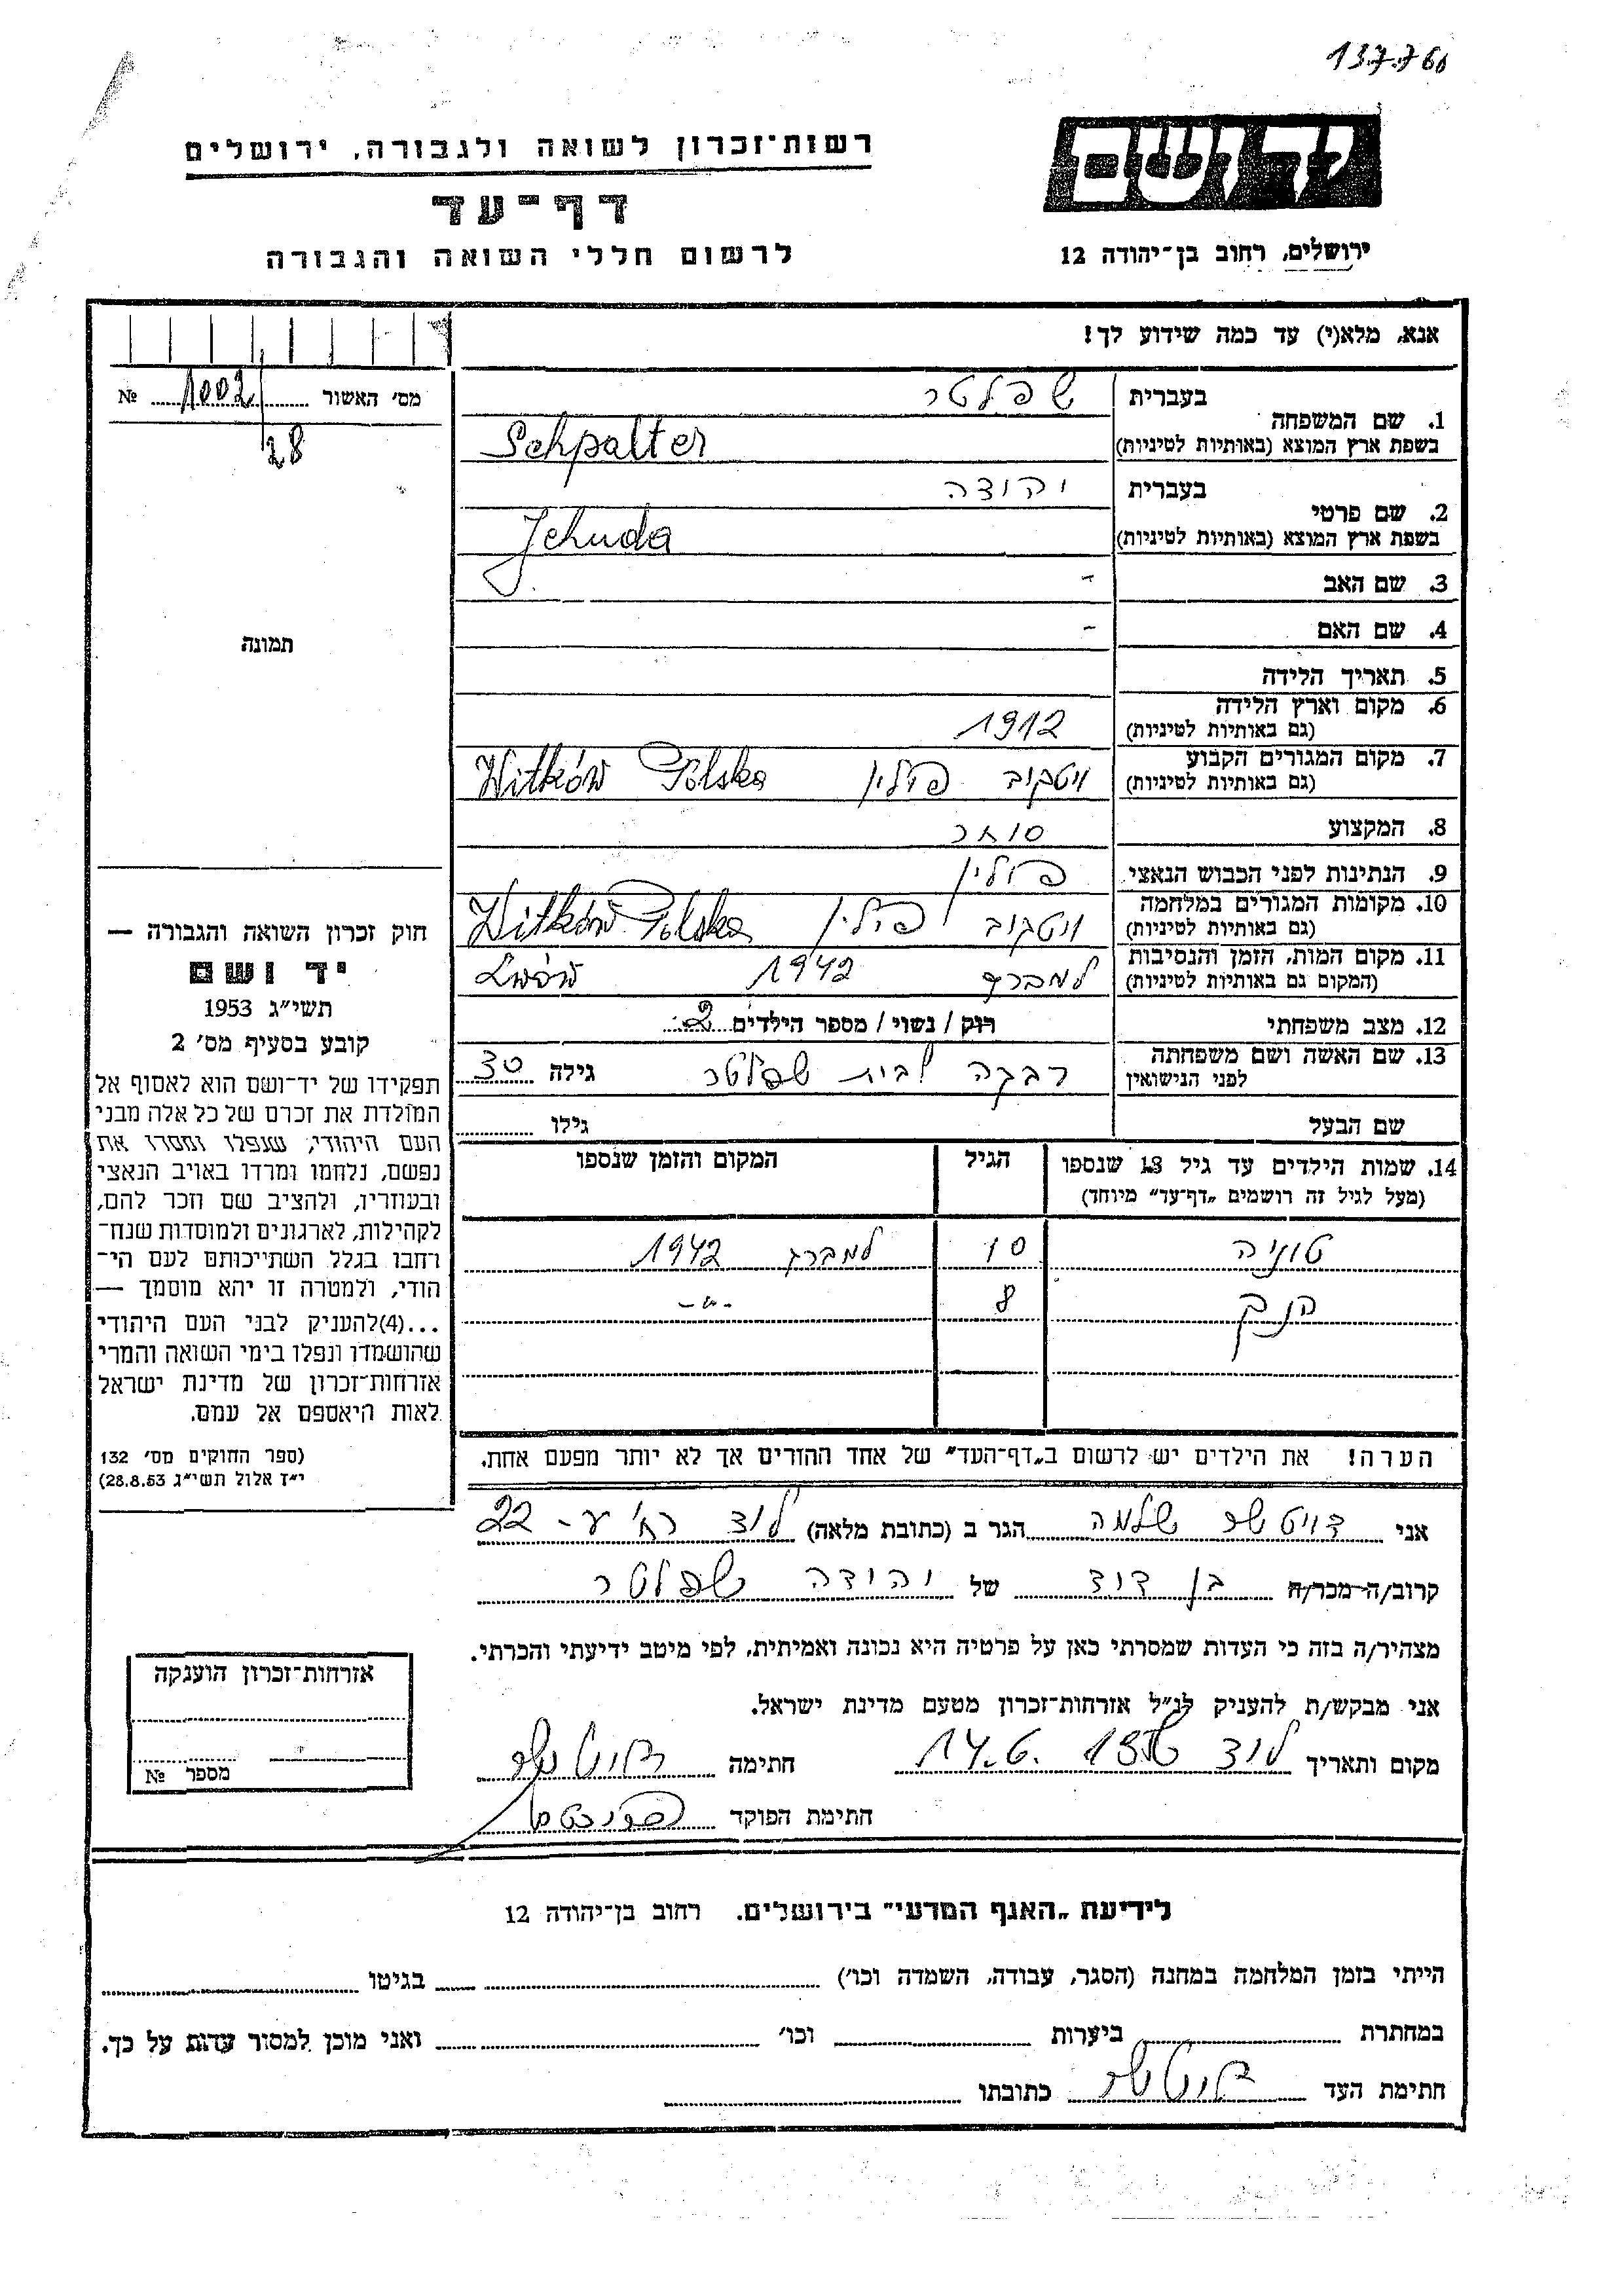 137.760
יד ושם
רשות־זכרון לשואה ולגבורה, ירושלים
דף־עד
לרשום חללי השואה והגבורה
ירושלים, רחוב בן־יהודה 12
אנא, מלא(י) עד כמה שידוע לך!
מס׳ האשור 1002/28 №
תמונה
חוק זכרון השואה והגבורה —
יד ושם
תשי״ג 1953
קובע בסעיף מס׳ 2
תפקידו של יד־ושם הוא לאסוף אל
המולדת את זכרם של כל אלה מבני
העם היהודי, שנפלו ומסרו את
נפשם, נלחמו ומרדו באויב הנאצי
ובעוזריו, ולהציב שם וזכר להם,
לקהילות, לארגונים ולמוסדות שנח־
רחבו בגלל השתייכותם לעם הי־
הודי, ולמטרה זו יהא מוסמך —
...(4)להעניק לבני העם היהודי
שהושמדו ונפלו בימי השואה והמרי
אזרחות־זכרון של מדינת ישראל
לאות היאספם אל עמם.
(ספר החוקים מס׳ 132
י״ז אלול תשי״ג 28.8.53)
בעברית שפלטר
1. שם המשפחה
בשפת ארץ המוצא (באותיות לטיניות) Schpalter
בעברית יהודה
2. שם פרטי
בשפת ארץ המוצא (באותיות לטיניות) Jehuda
3. שם האב -
4. שם האם -
5. תאריך הלידה
6. מקום וארץ הלידה
(גם באותיות לטיניות) 1912
7. מקום המגורים הקבוע
(גם באותיות לטיניות) ויטקוב פולין Witków Polska
8. המקצוע סוחר
9. הנתינות לפני הכבוש הנאצי פולין
10. מקומות המגורים במלחמה
(גם באותיות לטיניות) ויטקוב פולין Witków Polska
11. מקום המות, הזמן והנסיבות
(המקום גם באותיות לטיניות) למברג 1942 Lwów
12. מצב משפחתי רוק / נשוי / מספר הילדים 2
13. שם האשה ושם משפחתה
לפני הנישואין רבקה לבית שפלטר גילה 30
שם הבעל גילו
14. שמות הילדים עד גיל 18 שנספו הגיל המקום והזמן שנספו
(מעל לגיל זה רושמים „דף־עד״ מיוחד)
טוניה 10 למברג 1942
הנק 8 -״-
הערה! את הילדים יש לרשום ב„דף־העד״ של אחד ההורים אך לא יותר מפעם אחת.
אני דויטשר שלמה הגר ב (כתובת מלאה) לוד רח׳ ע-22
קרוב/ה מכר/ה בן דוד של יהודה שפלטר
מצהיר/ה בזה כי העדות שמסרתי כאן על פרטיה היא נכונה ואמיתית, לפי מיטב ידיעתי והכרתי.
אני מבקש/ת להעניק לנ״ל אזרחות־זכרון מטעם מדינת ישראל.
מקום ותאריך לוד 14.6. חתימה דויטשר
חתימת הפוקד
אזרחות־זכרון הוענקה
מספר №
לידיעת „האגף המדעי״ בירושלים. רחוב בן־יהודה 12
הייתי בזמן המלחמה במחנה (הסגר, עבודה, השמדה וכו׳) בגיטו
במחתרת ביערות וכו׳ ואני מוכן למסור עדות על כך.
חתימת העד דויטשר כתובתו